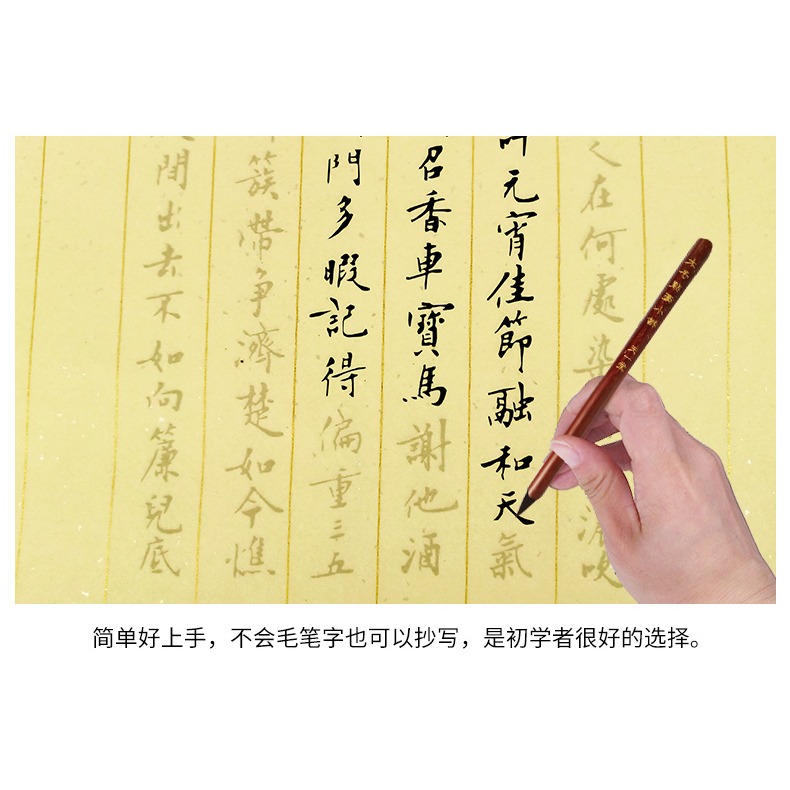 在何處染吹
元宵佳節融和天氣
召香車寶馬謝他酒
門多暇記得偏重三五
簇帶爭濟楚如今憔
間出去不如向簾兒底
简单好上手，不会毛笔字也可以抄写，是初学者很好的选择。